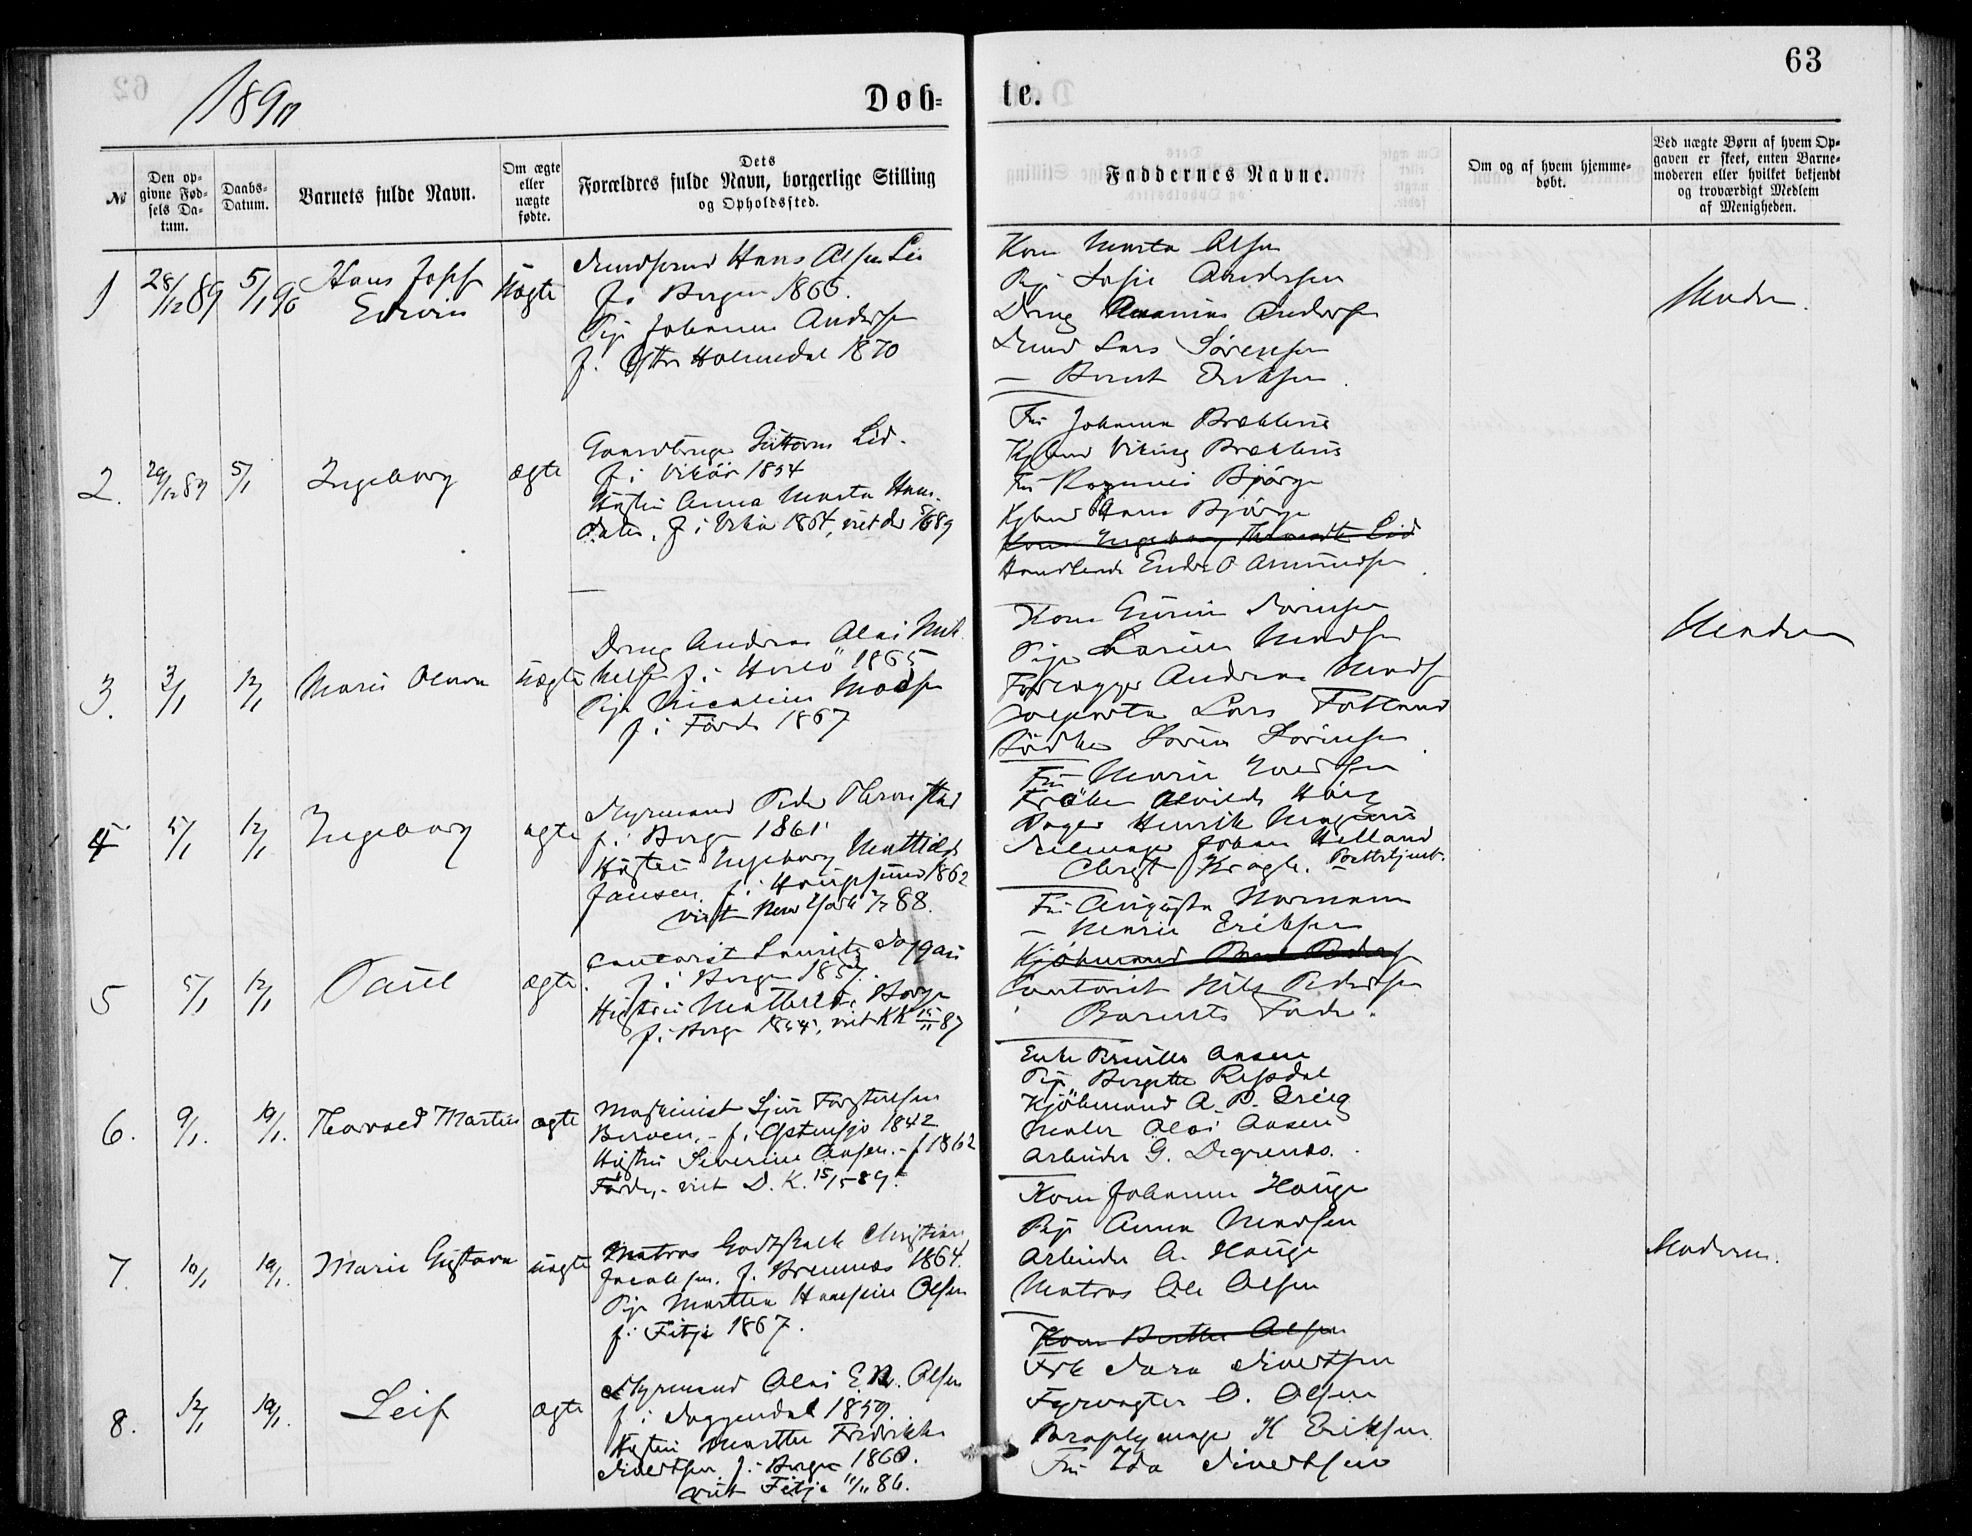 63
1890
Døb-
te.
№
Den opgivne Fødsels Datum.
Daabs-Datum.
Barnets fulde Navn.
Om ægte eller uægte fødte.
Dets
Forældres fulde Navn, borgerlige Stilling
og Opholdssted.
Faddernes Navne.
Om og af hvem hjemme-
døbt.
Ved uægte Børn af hvem Op-
gaven er skeet, enten Barne-
moderen eller hvilket bekjendt
og troværdigt Medlem
af Menigheden.
1
28/12 89
5/1 90
Hans Josef
Edvin
uægte
Hans Olsen Lie
f. i Bergen 1866.
Pige Johanne Anders
f. Yttre Holmedal 1870
Kone Marta Olsen
Pige Andersen
Dreng Ananias Anders
Lars Sørensen
— Berent Eriksen.
Moderen
2.
29/12 89
5/1
Ingeborg
ægte
Gaardbruger Guttorm Lid.
f. i Vikør 1854
Hustru Anna Marta Hans-
datter, f. i Vikør 1864, viet
Fru Johanna Brekhus
Viking Brekhus
Fru Bjørge
Hans Bjørge
Kone Ingeborg Lid
Endre O Amundsen
3.
3/1
12/1
Marie Olava
uægte
Dreng Andreas Olai Mik
kels f. i 1865
Pige Nicoline Mads
f. i Førde 1867
Kone Gurine Sørensen
Pige Larine Mads
Andreas Mads
Lars Fotland
Bødker Søren Sørensen
Moderen
4
5/1
12/1
Ingeborg
ægte
Styrmand Peder
f. i Bergen 1861
Hustru Ingeborg Mathilde
Jansen f. i Haugesund 1862
viet New York 88.
Fru Marie
Frøken Alvilde
Bager Henrik Magnus
Seilmager Johan Helland
Christ Kragh.
5
5/1
12/1
Paul
ægte
Contorist Lauritz
f. i Bergen 1857.
Hustru Mathilde Borge
f. i Bergen viet KK 15/11 87
Fru Augusta Normann
— Marie Eriksen
Kjøbmand
Contorist Nils Pedersen
Barnets Fader.
6.
9/1.
19/1.
Thorvald Martin
ægte
Maskinist Sjur Torstensen
Berven, - f. i Østensjø 1842
Hustru Severine Aasen. - f 1862
Førde, - viet D. K. 15/1 89.
Enke Pernille Aasen
Pige Birgitte Refsdal
Kjøbmand A. B. Grieg
Maler Olai Aasen
Arbeider G. Degrenæs.
7.
10/1
19/1.
Marie Gustava
uægte
Matros Godtskalk Christian
Jacobsen. f. Bremnæs 1864.
Pige Martha Hansine Olsen
f. i Fitje 1867.
Kone Johanne Hauge
Pige Anna Madsen
Arbeider A. Hauge
Matros Ole Olsen
Moderen.
8.
12/1
19/1.
Leif
ægte
Styrmand Olai E. N. Olsen
f. i 1859.
Hustru Marthe Fredrikke
Sivertsen f. i Bergen 1860.
viet Fitje 11/11 86.
Kone Berthe Olsen
Frk Sara Sivertsen
Fyrvogter O. Olsen
Paraplymager K Eriksen
Fru Ida Sivertsen